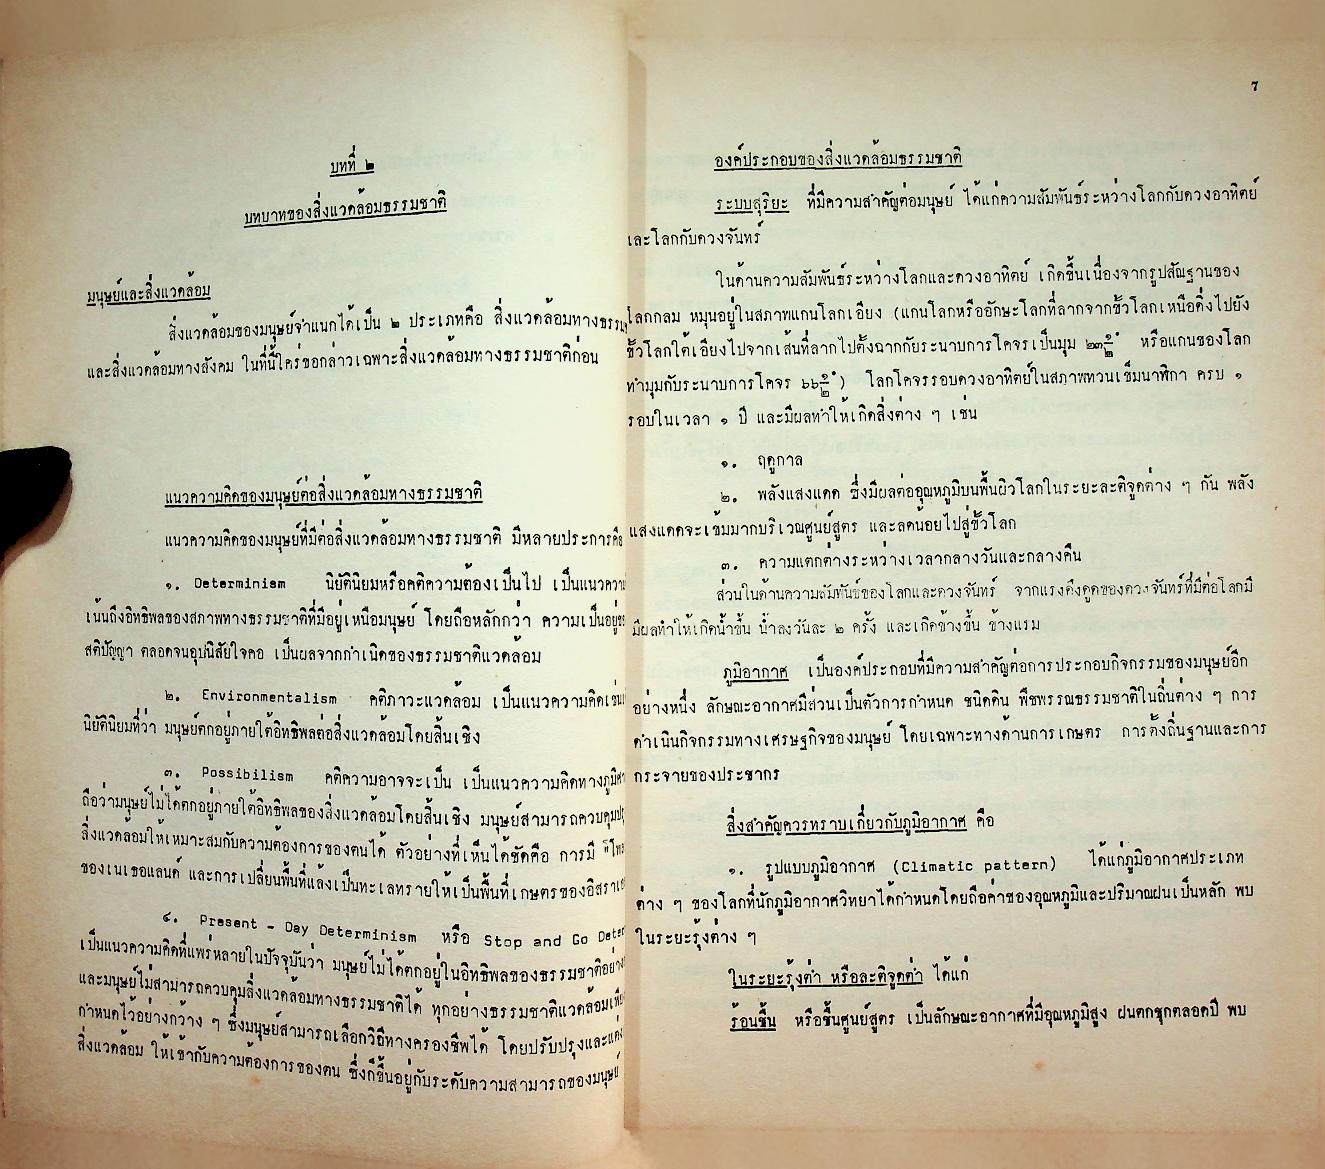 บทที่ ๒
บทบาทของสิ่งแวดล้อมธรรมชาติ
มนุษย์และสิ่งแวดล้อม
สิ่งแวดล้อมของมนุษย์จำแนกได้เป็น ๒ ประเภทคือ สิ่งแวดล้อมทางธรรม
และสิ่งแวดล้อมทางสังคม ในที่นี้ใคร่ขอกล่าวเฉพาะสิ่งแวดล้อมทางธรรมชาติก่อน
แนวความคิดของมนุษย์ต่อสิ่งแวดล้อมทางธรรมชาติ
แนวความคิดของมนุษย์ที่มีต่อสิ่งแวดล้อมทางธรรมชาติ มีหลายประการคือ
๑. Determinism นิยัตินิยมหรือคติความต้องเป็นไป เป็นแนวความ
เน้นถึงอิทธิพลของสภาพทางธรรมชาติที่มีอยู่เหนือมนุษย์ โดยถือหลักกว่า ความเป็นอยู่
สติปัญญา ตลอดจนอุปนิสัยใจคอ เป็นผลจากกำเนิดของธรรมชาติแวดล้อม
๒. Environmentalism คติภาวะแวดล้อม เป็นแนวความคิดเช่น
นิยัตินิยมที่ว่า มนุษย์ตกอยู่ภายใต้อิทธิพลต่อสิ่งแวดล้อมโดยสิ้นเชิง
๓. Possibilism คติความอาจจะเป็น เป็นแนวความคิดทางภูมิ
ถือว่ามนุษย์ไม่ได้ตกอยู่ภายใต้อิทธิพลของสิ่งแวดล้อมโดยสิ้นเชิง มนุษย์สามารถควบคุม
สิ่งแวดล้อมให้เหมาะสมกับความต้องการของตนได้ ตัวอย่างที่เห็นได้ชัดคือ การมี
ของเนเธอแลนด์ และการเปลี่ยนพื้นที่แล้งเป็นทะเลทรายให้เป็นพื้นที่เกษตรของอิสรา
๔. Present - Day Determinism หรือ Stop and Go Deter
เป็นแนวความคิดที่แพร่หลายในปัจจุบันว่า มนุษย์ไม่ได้ตกอยู่ในอิทธิพลของธรรมชาติอย่าง
และมนุษย์ไม่สามารถควบคุมสิ่งแวดล้อมทางธรรมชาติได้ ทุกอย่างธรรมชาติแวดล้อมเพียง
กำหนดไว้อย่างกว้าง ๆ ซึ่งมนุษย์สามารถเลือกวิถีทางครองชีพได้ โดยปรับปรุงและ
สิ่งแวดล้อม ให้เข้ากับความต้องการของตน ซึ่งก็ขึ้นอยู่กับระดับความสามารถของมนุษย์
๗
องค์ประกอบของสิ่งแวดล้อมธรรมชาติ
ระบบสุริยะ ที่มีความสำคัญต่อมนุษย์ ได้แก่ความสัมพันธ์ระหว่างโลกกับดวงอาทิตย์
และโลกกับดวงจันทร์
ในด้านความสัมพันธ์ระหว่างโลกและดวงอาทิตย์ เกิดขึ้นเนื่องจากรูปสัณฐานของ
โลกกลม หมุนอยู่ในสภาพแกนโลกเอียง (แกนโลกหรืออักษะโลกที่ลากจากขั้วโลกเหนือดิ่งไปยัง
ขั้วโลกใต้เอียงไปจากเส้นที่ลากไปตั้งฉากกับระนาบการโคจรเป็นมุม ๒๓ ๑/๒ ° หรือแกนของโลก
ทำมุมกับระนาบการโคจร ๖๖ ๑/๒ °) โลกโคจรรอบดวงอาทิตย์ในสภาพทวนเข็มนาฬิกา ครบ ๑
รอบในเวลา ๑ ปี และมีผลทำให้เกิดสิ่งต่าง ๆ เช่น
๑. ฤดูกาล
๒. พลังแสงแดด ซึ่งมีผลต่ออุณหภูมิบนพื้นผิวโลกในระยะละติจูดต่าง ๆ กัน พลัง
แสงแดดจะเข้มมากบริเวณศูนย์สูตร และลดน้อยไปสู่ขั้วโลก
๓. ความแตกต่างระหว่างเวลากลางวันและกลางคืน
ส่วนในด้านความสัมพันธ์ของโลกและดวงจันทร์ จากแรงดึงดูดของดวงจันทร์ที่มีต่อโลกมี
มีผลทำให้เกิดน้ำขึ้น น้ำลงวันละ ๒ ครั้ง และเกิดข้างขึ้น ข้างแรม
ภูมิอากาศ เป็นองค์ประกอบที่มีความสำคัญต่อการประกอบกิจกรรมของมนุษย์อีก
อย่างหนึ่ง ลักษณะอากาศมีส่วนเป็นตัวการกำหนด ชนิดดิน พืชพรรณธรรมชาติในถิ่นต่าง ๆ การ
ดำเนินกิจกรรมทางเศรษฐกิจของมนุษย์ โดยเฉพาะทางด้านการเกษตร การตั้งถิ่นฐานและการ
กระจายของประชากร
สิ่งสำคัญควรทราบเกี่ยวกับภูมิอากาศ คือ
๑. รูปแบบภูมิอากาศ (Climatic pattern) ได้แก่ภูมิอากาศประเภท
ต่าง ๆ ของโลกที่นักภูมิอากาศวิทยาได้กำหนดโดยถือค่าของอุณหภูมิและปริมาณฝนเป็นหลัก พบ
ในระยะรุ้งต่าง ๆ
ในระยะรุ้งต่ำ หรือละติจูดต่ำ ได้แก่
ร้อนชื้น หรือชื้นศูนย์สูตร เป็นลักษณะอากาศที่มีอุณหภูมิสูง ฝนตกชุกตลอดปี พบ